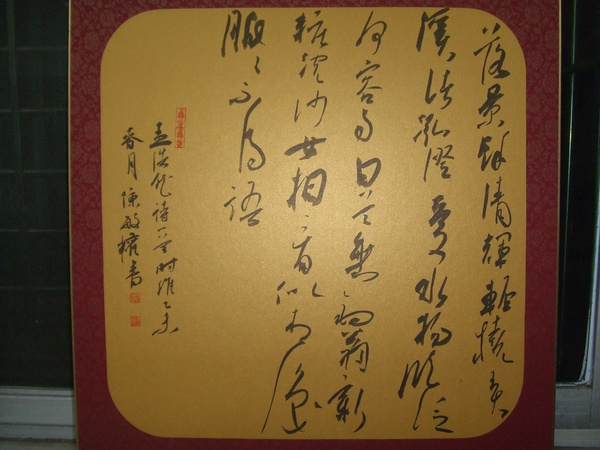 落景餘清輝輕橈弄
溪渚泓澄愛水物臨泛
何容與白首垂釣翁新
粧浣沙女相看似相識
脈々不得語
孟浩然诗一首时维乙未
春月陳敏權書